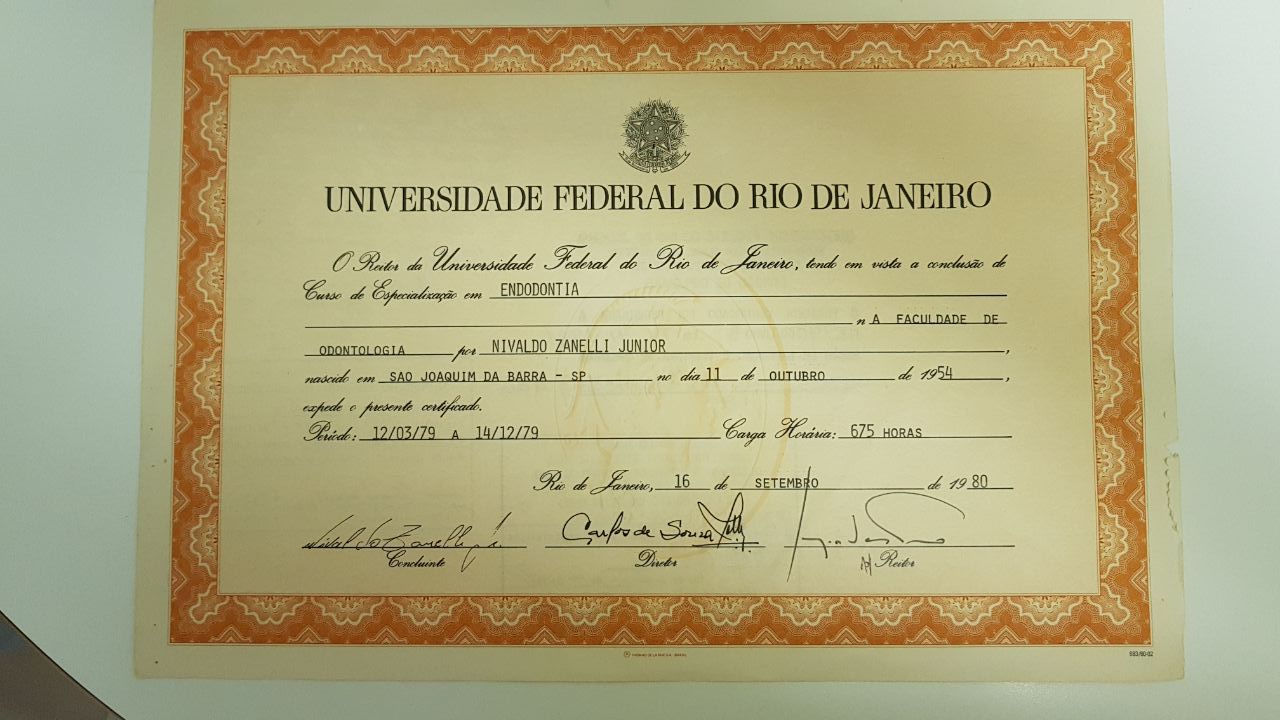 UNIVERSIDADE FEDERAL DO RIO DE JANEIRO
O Reitor da Universidade Federal do Rio de Janeiro, tendo em vista a conclusão de
Curso de Especialização em ENDODONTIA
n A FACULDADE DE
ODONTOLOGIA por NIVALDO ZANELLI JUNIOR,
nascido em SAO JOAQUIM DA BARRA - SP no dia 11 de OUTUBRO de 1954,
expede o presente certificado.
Período: 12/03/79 A 14/12/79 Carga Horária: 675 HORAS
Rio de Janeiro, 16 de SETEMBRO de 1980
Nivaldo Zanelli Carlos de Souza
Concluinte Diretor Reitor